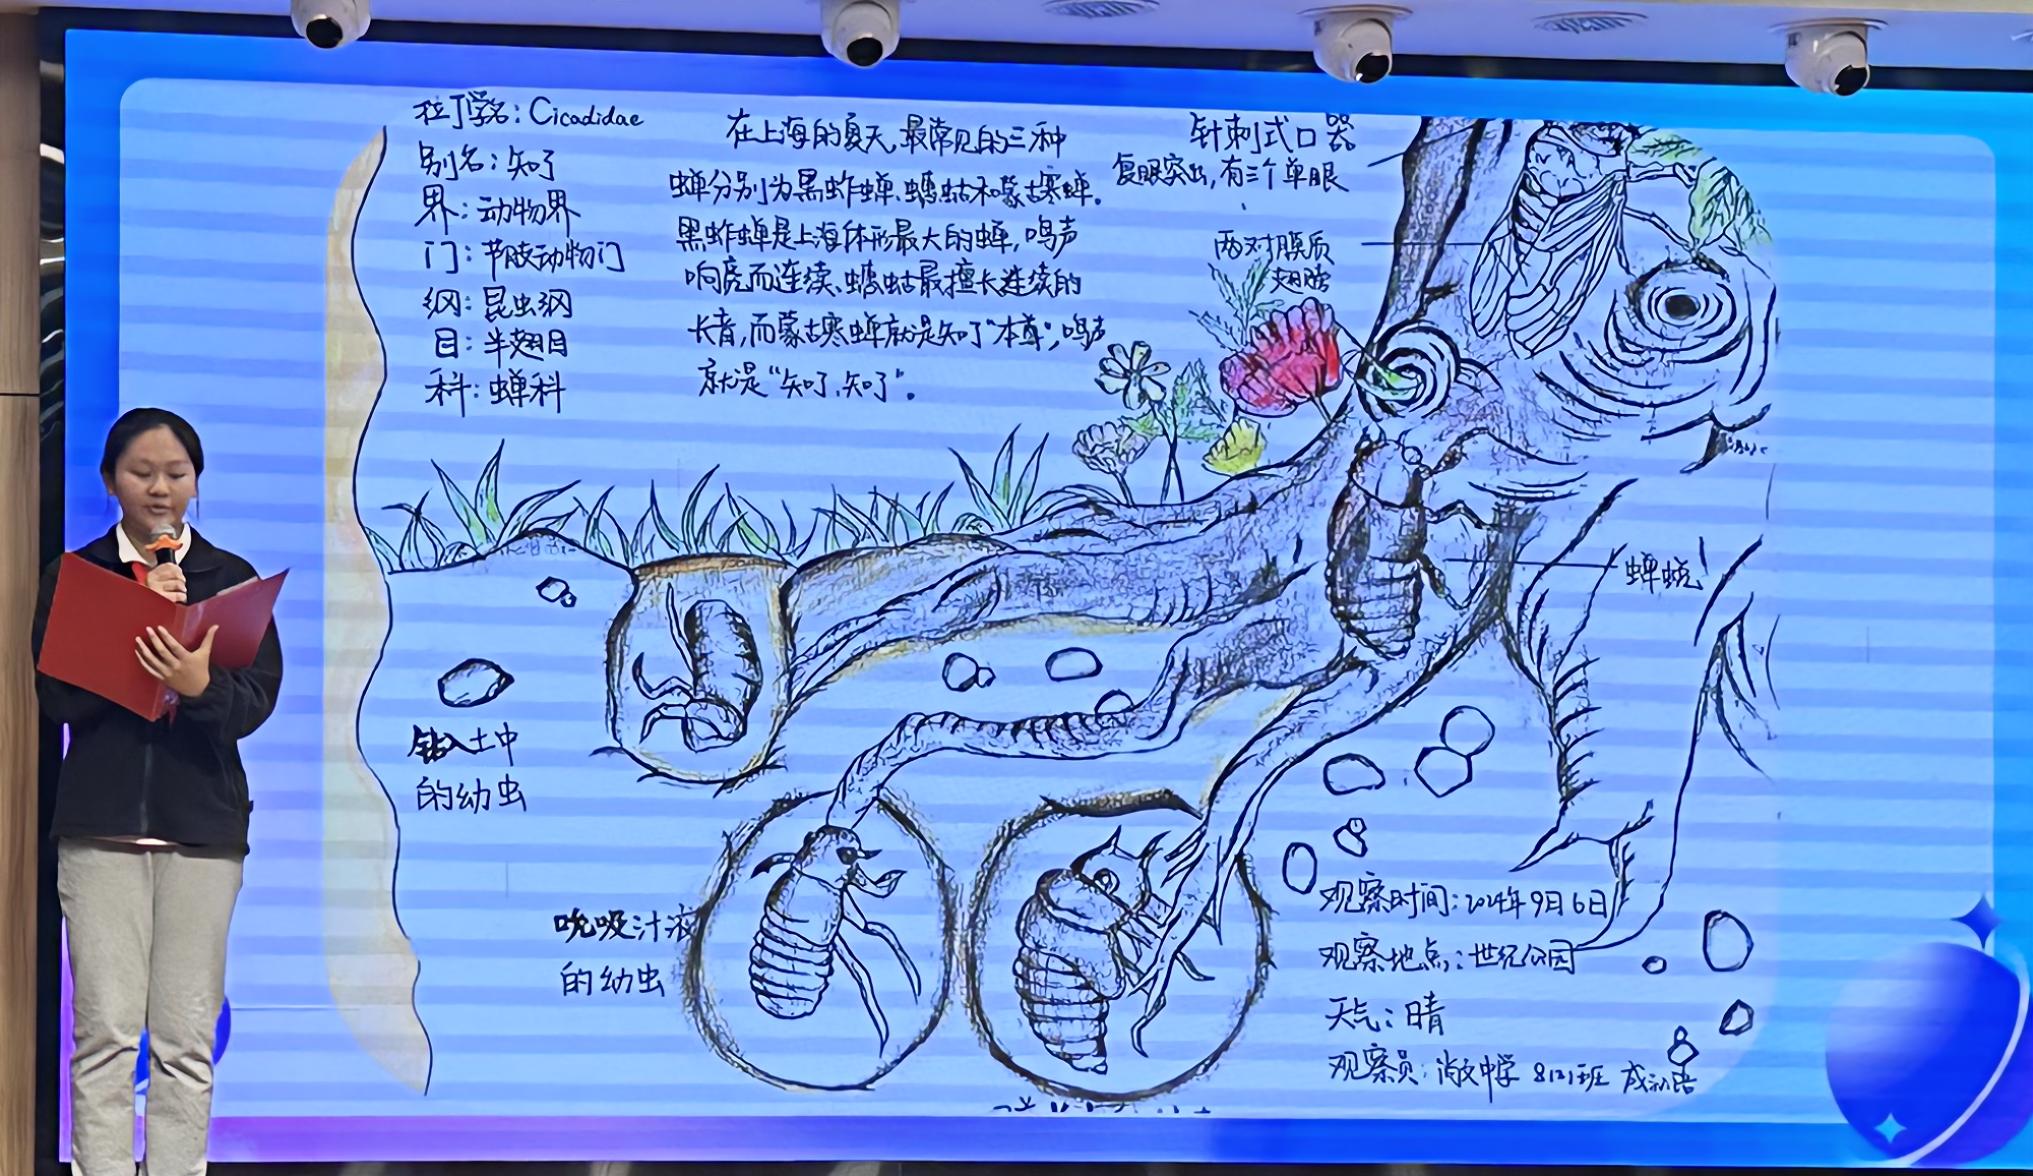 拉丁学名：Cicadidae
别名：知了
界：动物界
门：节肢动物门
纲：昆虫纲
目：半翅目
科：蝉科
在上海的夏天，最常见的三种
蝉分别为黑蚱蝉、蟪蛄和蒙古寒蝉。
黑蚱蝉是上海体形最大的蝉，鸣声
响亮而连续、蟪蛄最擅长连续的
长音，而蒙古寒蝉就是知了“本尊”，鸣声
就是“知了、知了”。
针刺式口器
复眼突出，有三个单眼
两对膜质
翅膀
蝉蜕
钻入土中
的幼虫
吮吸汁液
的幼虫
观察时间：2024年9月6日
观察地点：世纪公园
天气：晴
观察员：尚文中学